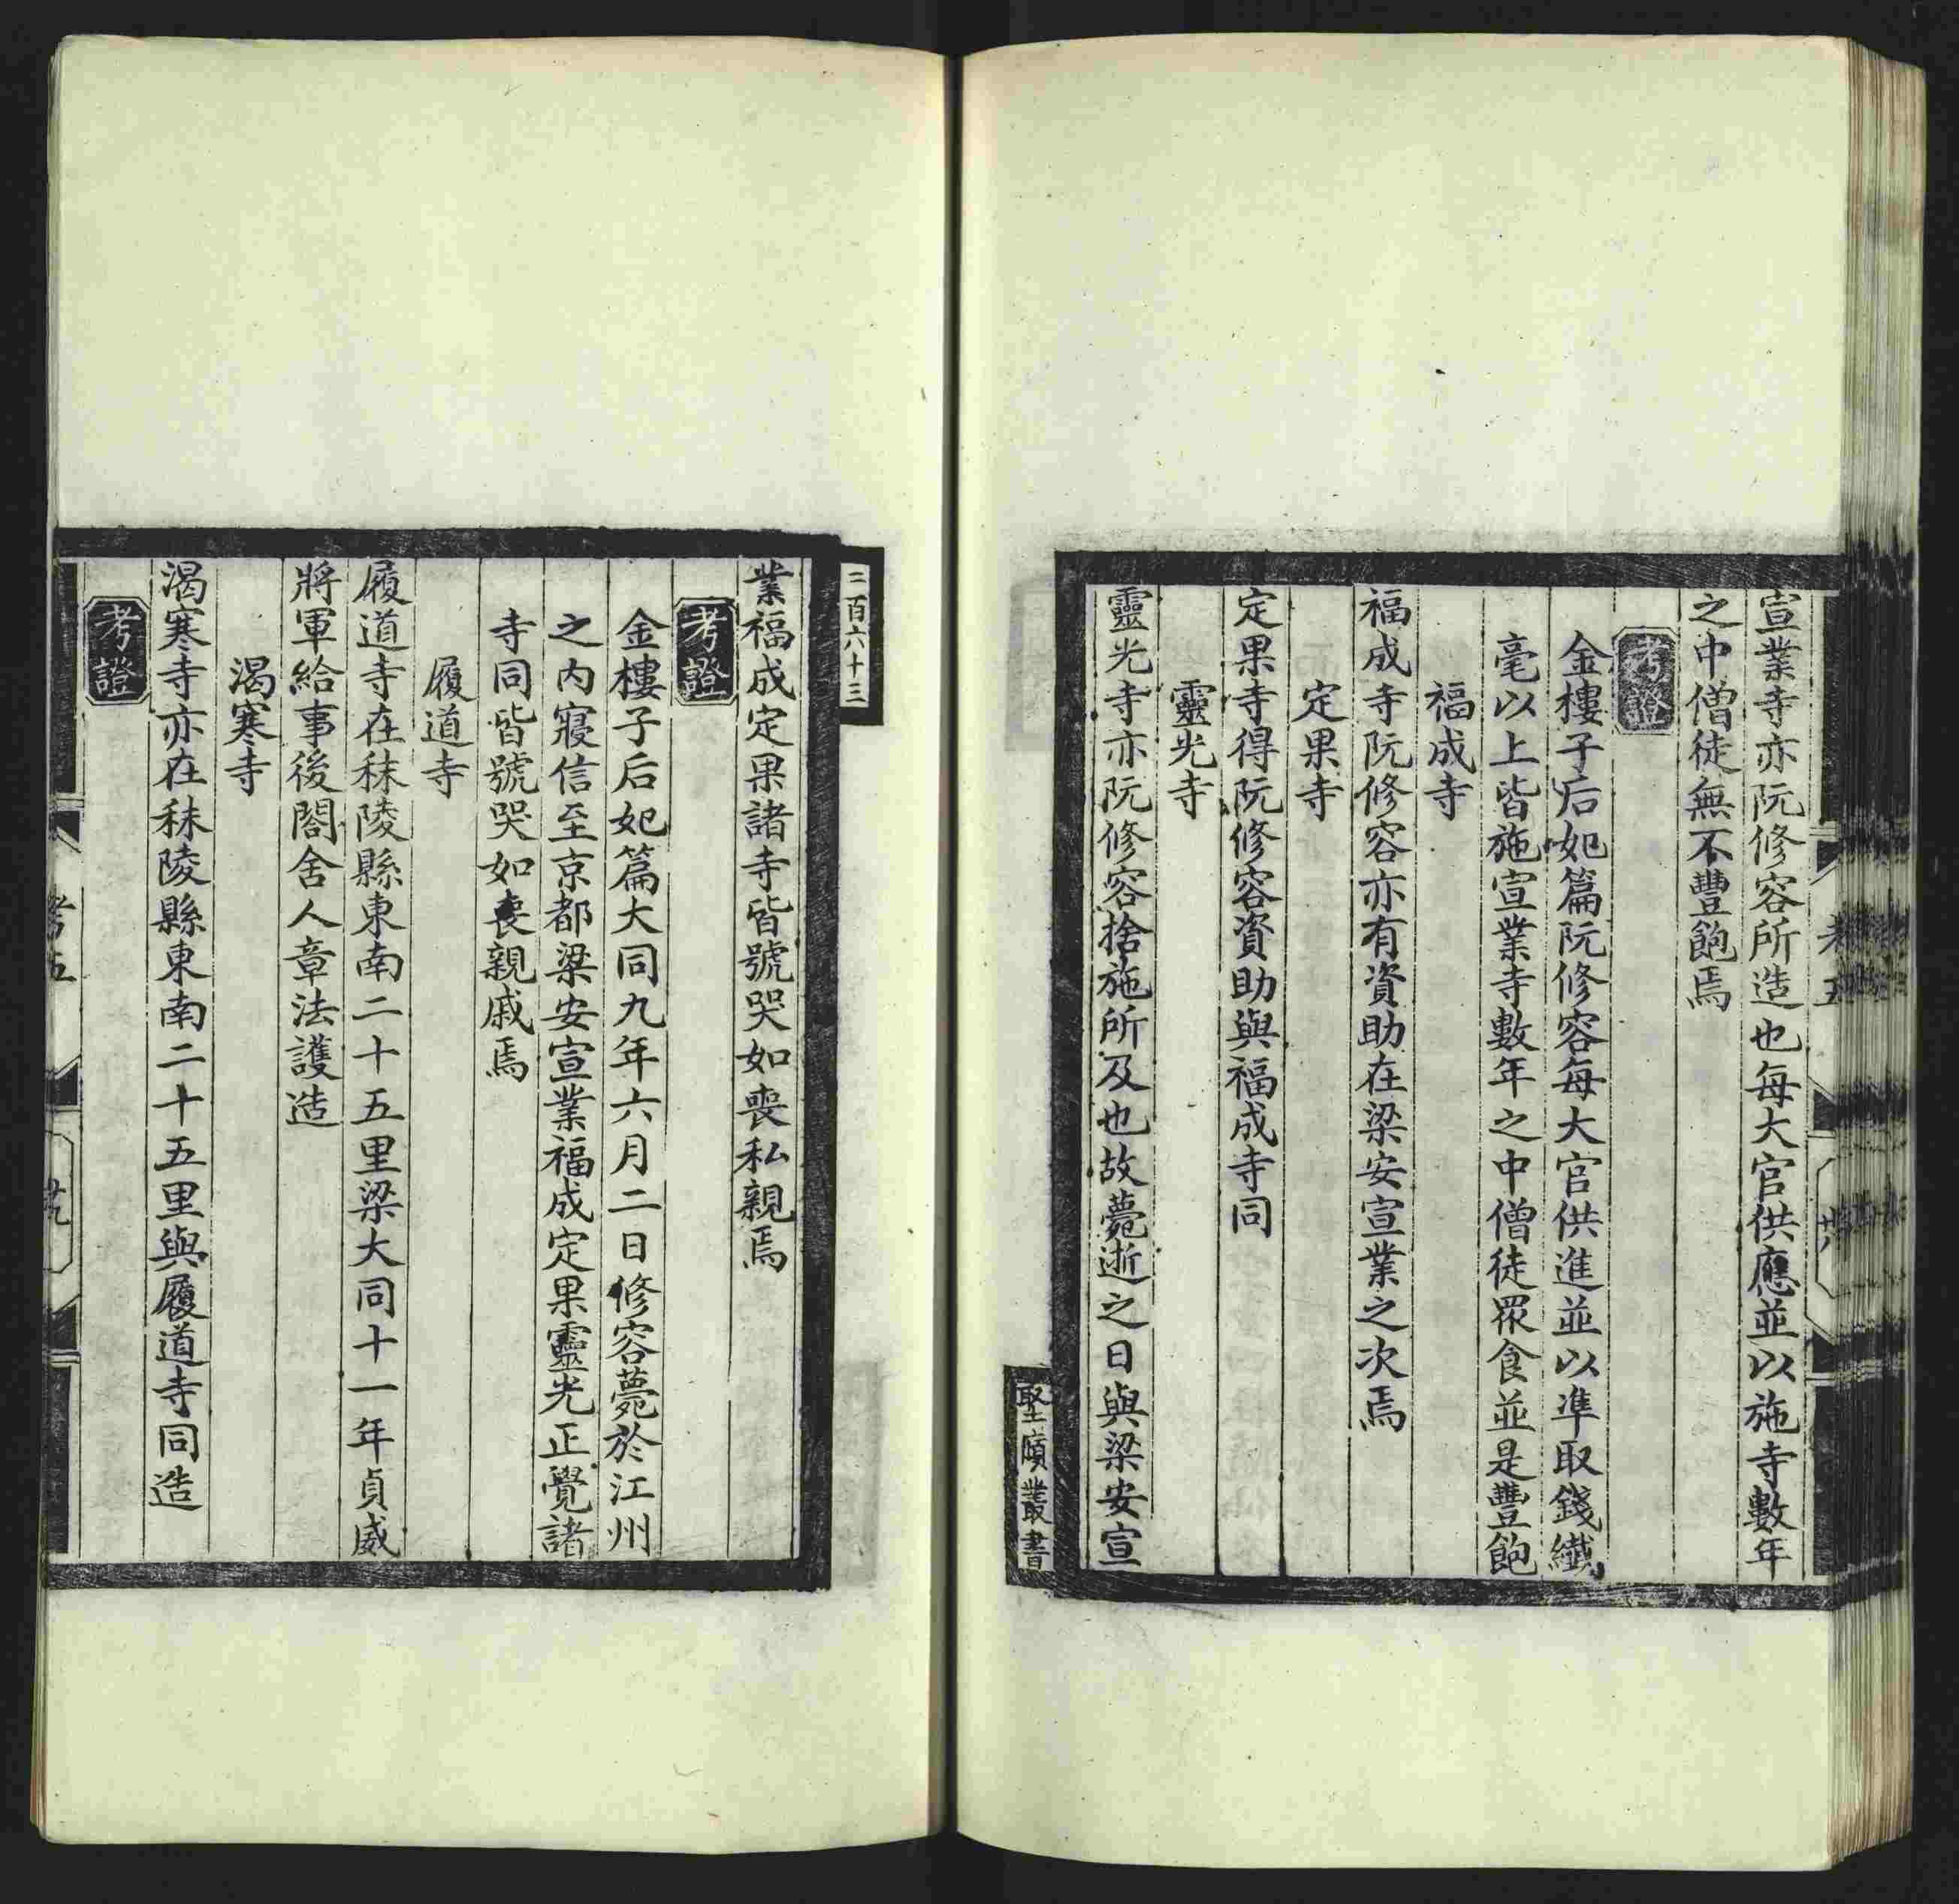 宣業寺亦阮修容所造也每大官供應並以施寺數年
之中僧徒無不豐飽焉
考證
金樓子后妃篇阮修容每大官供進並以準取錢纖
毫以上皆施宣業寺數年之中僧徒眾食並是豐飽
福成寺
福成寺阮修容亦有資助在梁安宣業之次焉
定果寺
定果寺得阮修容資助與福成寺同
靈光寺
靈光寺亦阮修容捨施所及也故薨逝之日與梁安宣
業福成定果諸寺皆號哭如喪私親焉
考證
金樓子后妃篇大同九年六月二日修容薨於江州
之内寢信至京都梁安宣業福成定果靈光正覺諸
寺同皆號哭如喪親戚焉
履道寺
履道寺在秣陵縣東南二十五里梁大同十一年貞威
將軍給事後閤舍人章法護造
渴寒寺
渴寒寺亦在秣陵縣東南二十五里與履道寺同造
考證
二百六十三
叢書